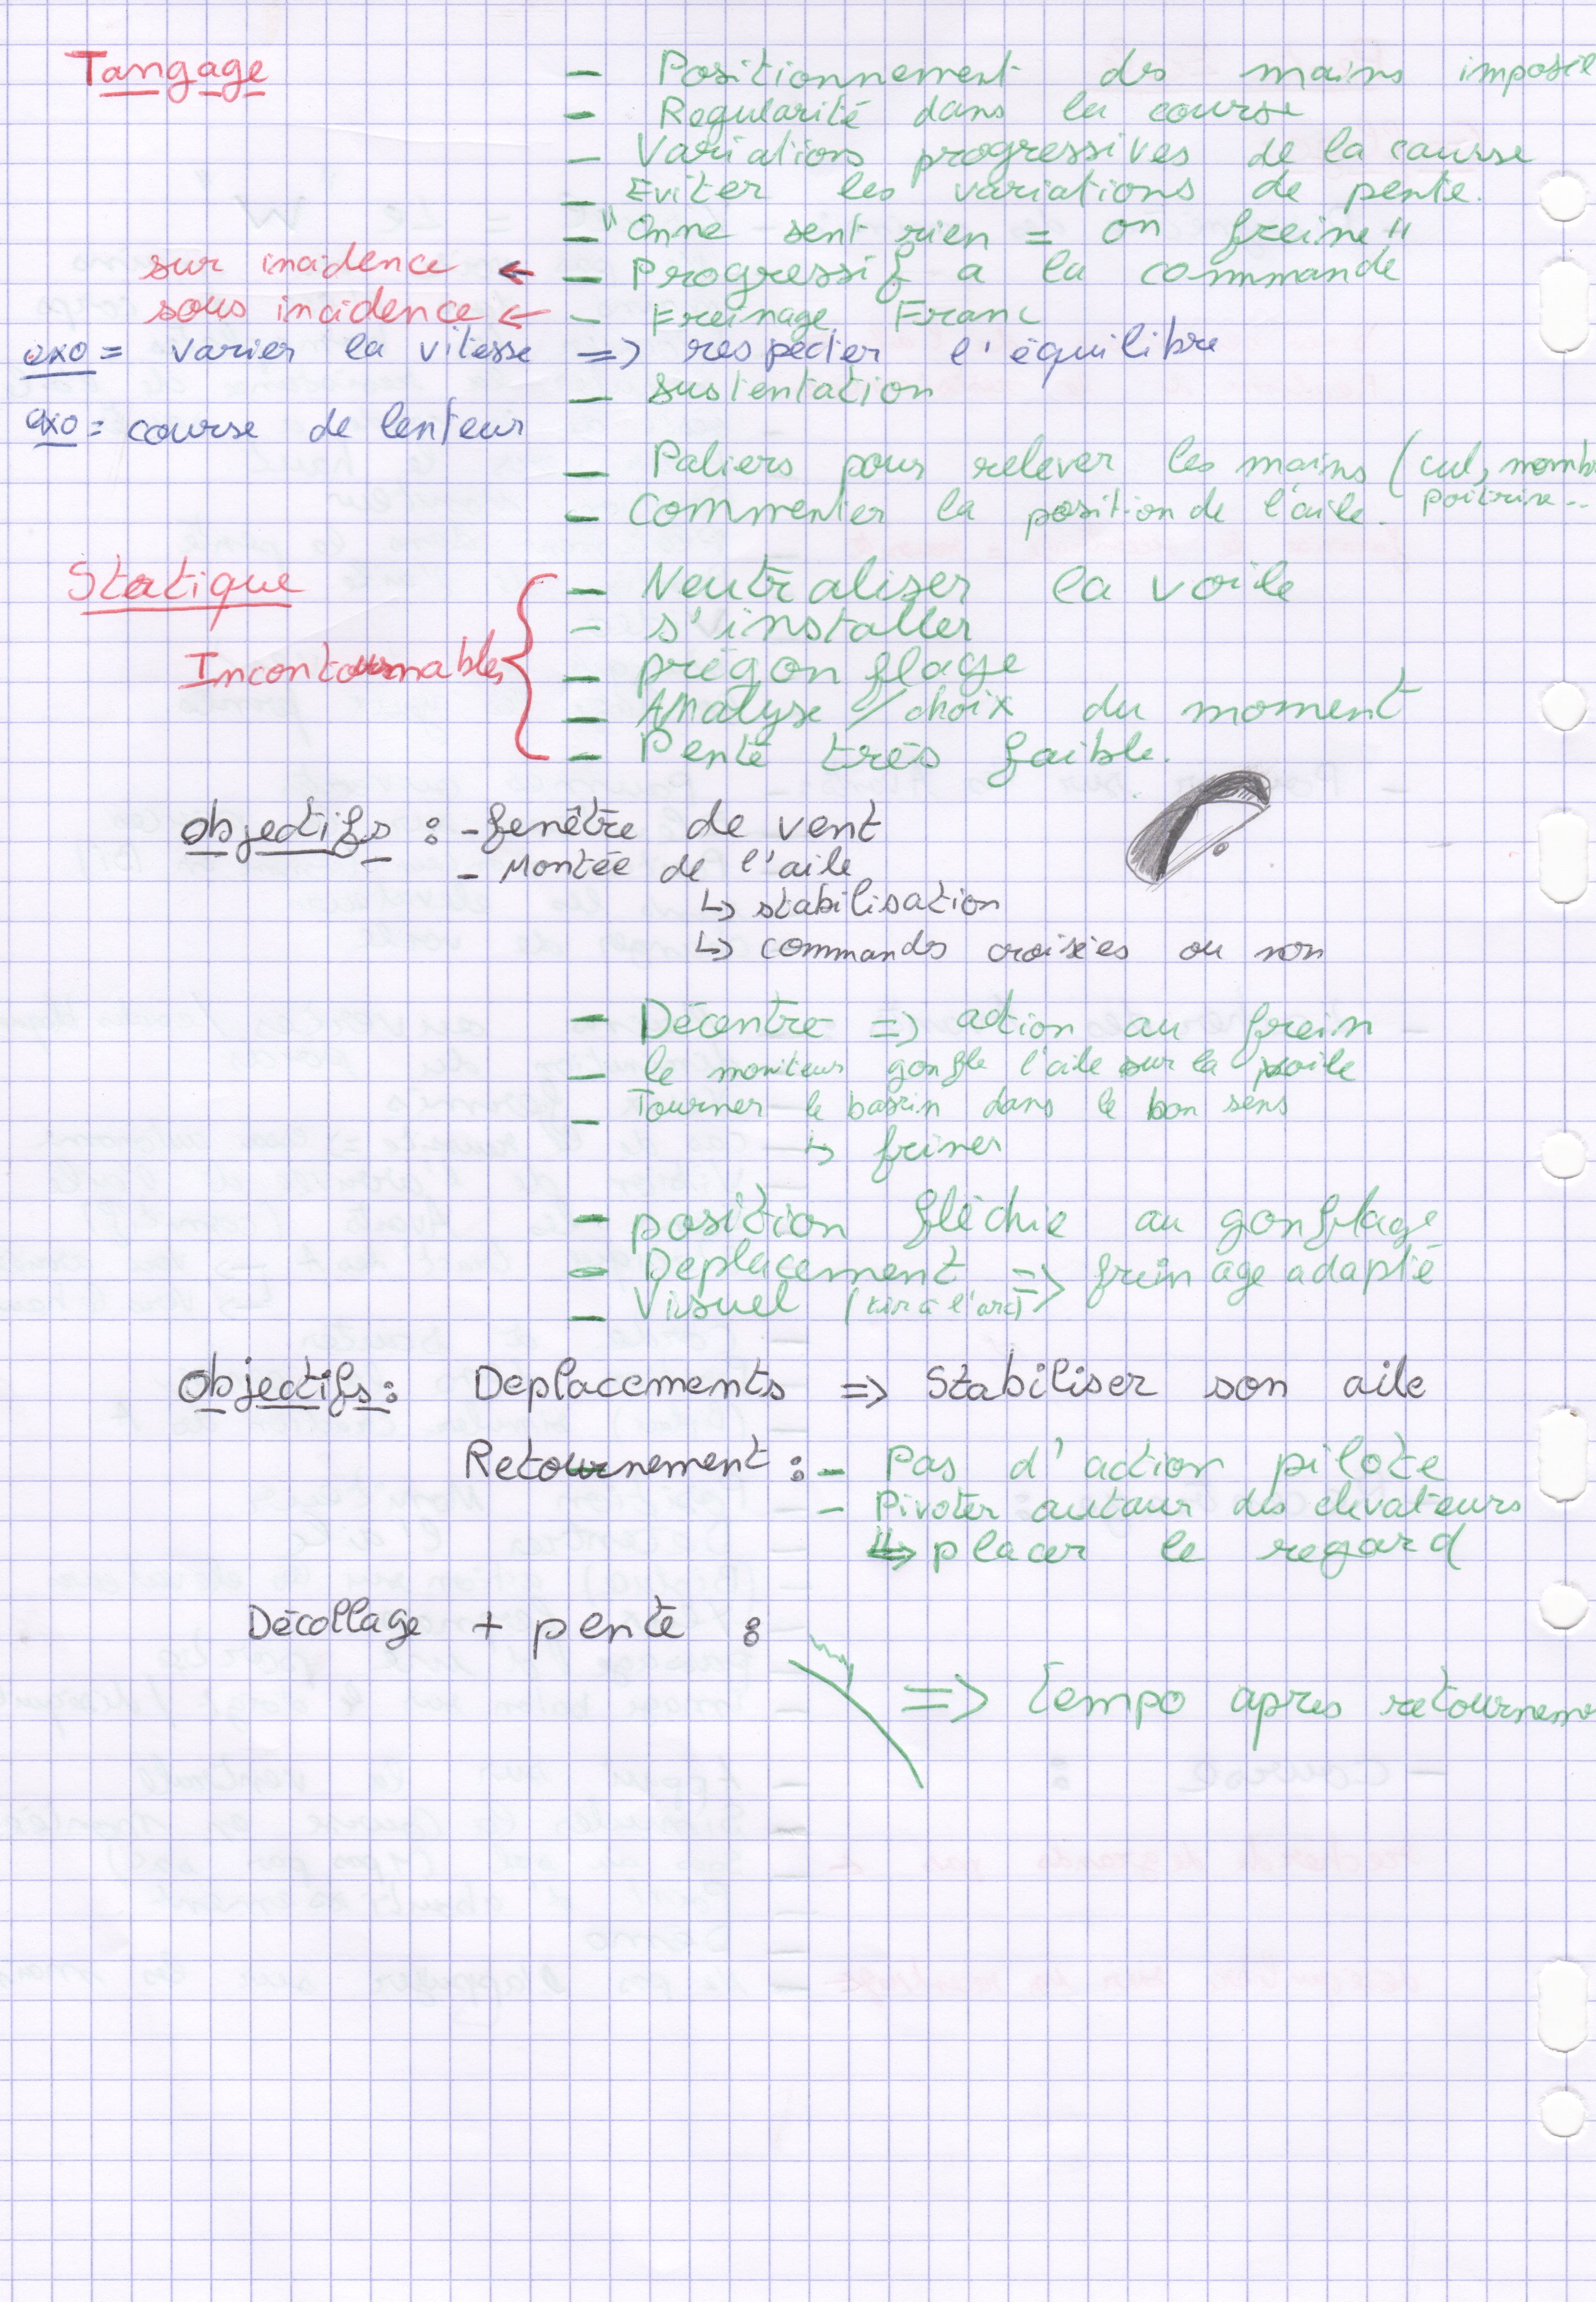 Tangage
- Positionnement des mains imposé
- Regularité dans la course
- Variations progressives de la course
- Eviter les variations de pente.
- "On ne sent rien = on freine"
sur incidence ← - Progressif a la commande
sous incidence ← - Freinage Franc
exo = varier la vitesse => respecter l'équilibre
- sustentation
exo = course de lenteur
- Paliers pour relever les mains (cul,
poitrine..
- Commenter la position de l'aile.
Statique
- Neutraliser la voile
- s'installer
Incontournables - prégonflage
- Analyse / choix du moment
- Pente très faible.
objectifs : - fenêtre de vent
- Montée de l'aile
↳ stabilisation
↳ commandes croisées ou non
- Décentré => action au frein
- le moniteur gonfle l'aile sur la voile
- Tourner le bassin dans le bon sens
↳ freiner
- position fléchie au gonflage
- Deplacement => freinage adapté
- Visuel (tir à l'arc)
Objectifs : Deplacements => Stabiliser son aile
Retournement : - Pas d'action pilote
- Pivoter autour des elevateurs
↳ placer le regard
Décollage + pente :
=> tempo apres retourneme